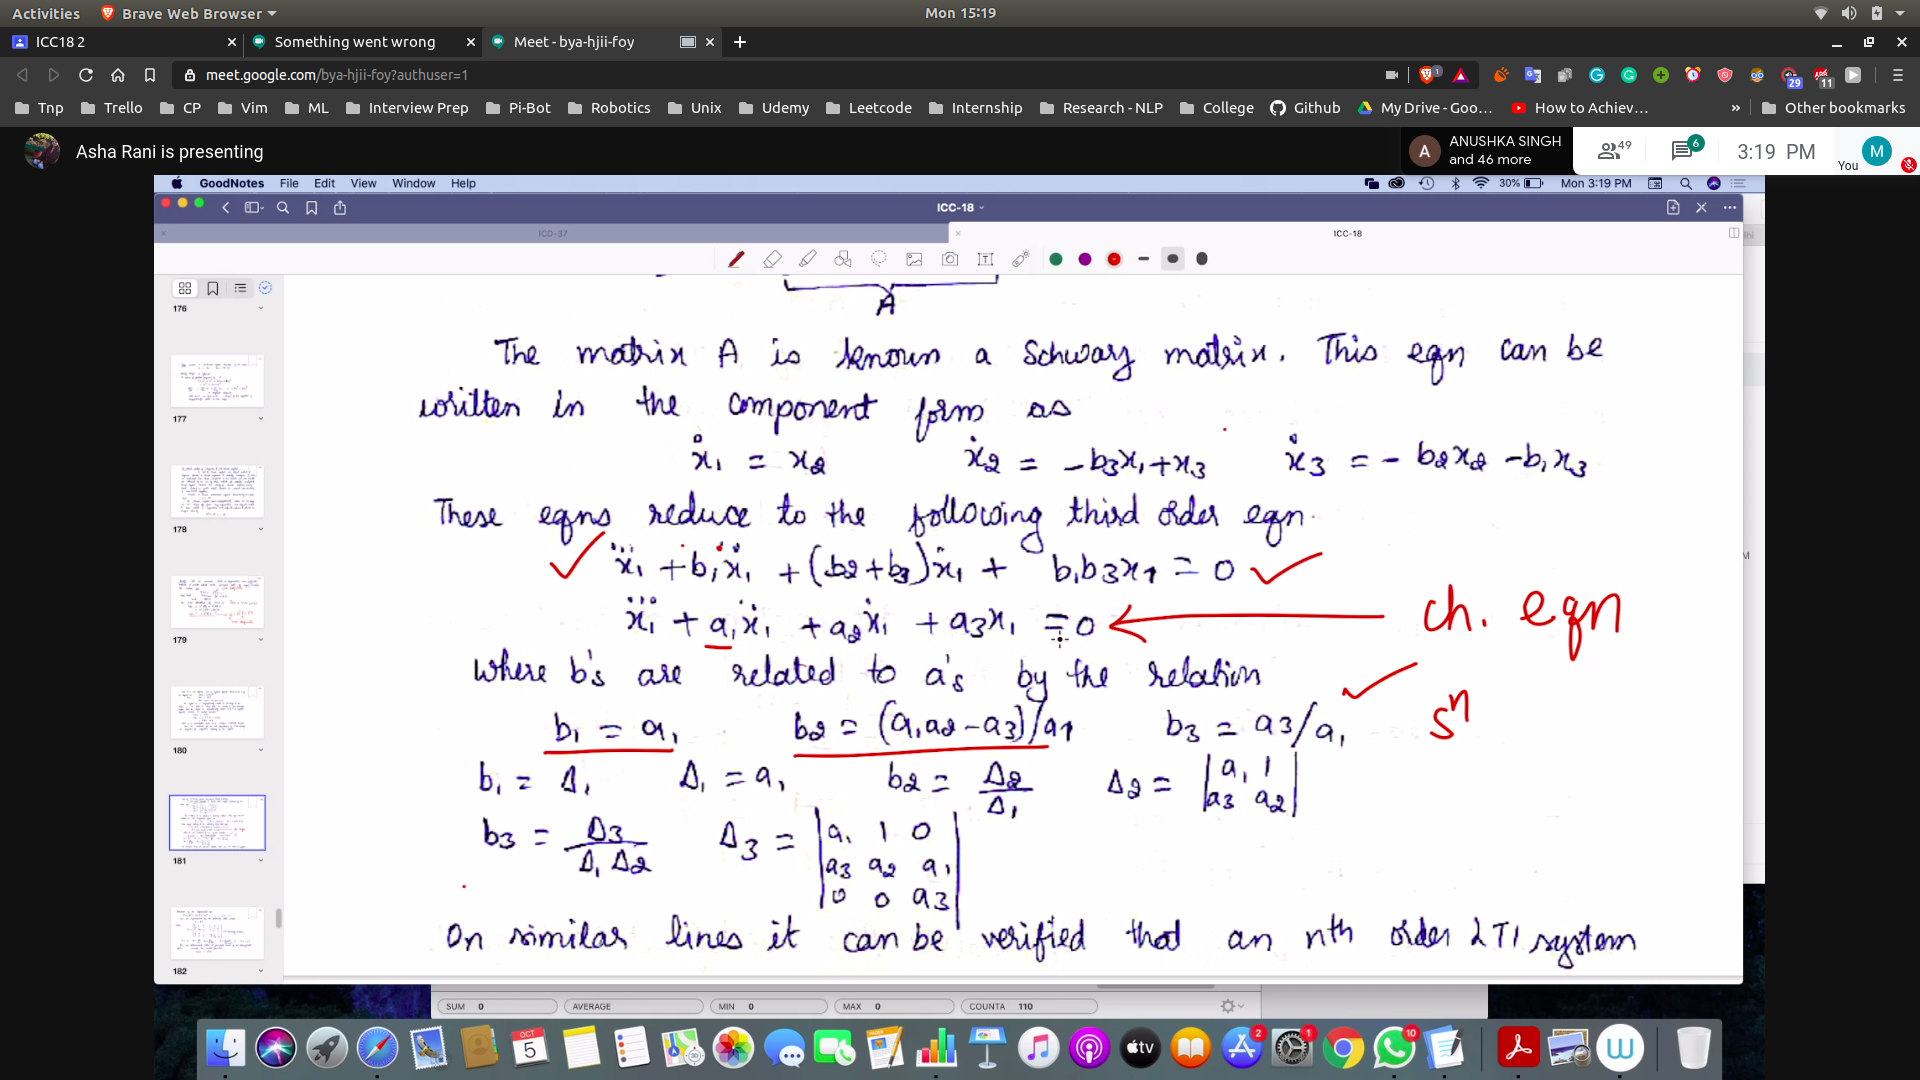 Activities Brave Web Browser Mon 15:19
ICC18 2 Something went wrong Meet - bya-hjii-foy
meet.google.com/bya-hjii-foy?authuser=1
Tnp Trello CP Vim ML Interview Prep Pi-Bot Robotics Unix Udemy Leetcode Internship Research - NLP College Github My Drive - Goo... How to Achiev... » Other bookmarks
Asha Rani is presenting
A ANUSHKA SINGH
and 46 more
49 6 3:19 PM You M
GoodNotes File Edit View Window Help 30% Mon 3:19 PM
ICC-18
ICD-37 ICC-18
176
177
178
179
180
181
182
A
The matrix A is known a Schwarz matrix. This eqn can be
written in the component form as
ẋ1 = x2 ẋ2 = -b3x1+x3 ẋ3 = - b2x2 -b1x3
These eqns reduce to the following third order eqn.
x⃛1 + b1ẍ1 + (b2+b3)ẋ1 + b1b3x1 = 0
x⃛1 + a1ẍ1 + a2ẋ1 + a3x1 = 0 ch. eqn
Where b's are related to a's by the relation
b1 = a1 b2 = (a1a2-a3)/a1 b3 = a3/a1 sⁿ
b1 = Δ1 Δ1 = a1 b2 = Δ2/Δ1 Δ2 = |a1 1
a3 a2|
b3 = Δ3/Δ1Δ2 Δ3 = |a1 1 0
a3 a2 a1
0 0 a3|
On similar lines it can be verified that an nth order LTI system
SUM 0 AVERAGE MIN 0 MAX 0 COUNTA 110
OCT
5
tv
2 1 10